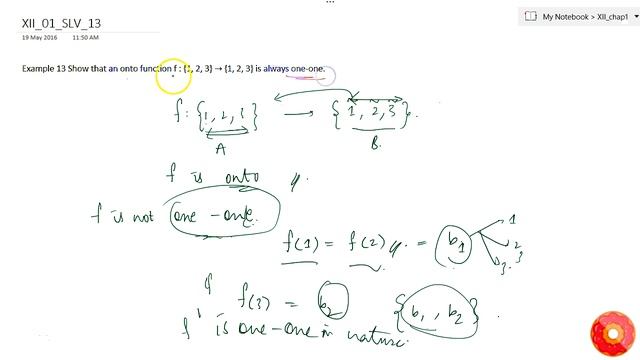 XII_01_SLV_13
My Notebook > XII_chap1
19 May 2016 11:50 AM
Example 13 Show that an onto function f : {1, 2, 3} → {1, 2, 3} is always one-one.
f : {1, 2, 3} → {1, 2, 3}.
A B.
f is onto
f is not one-one.
f(1) = f(2) = b1
1
2
3
3.
f(3) = b2 {b1, b2}.
f is one-one in nature.